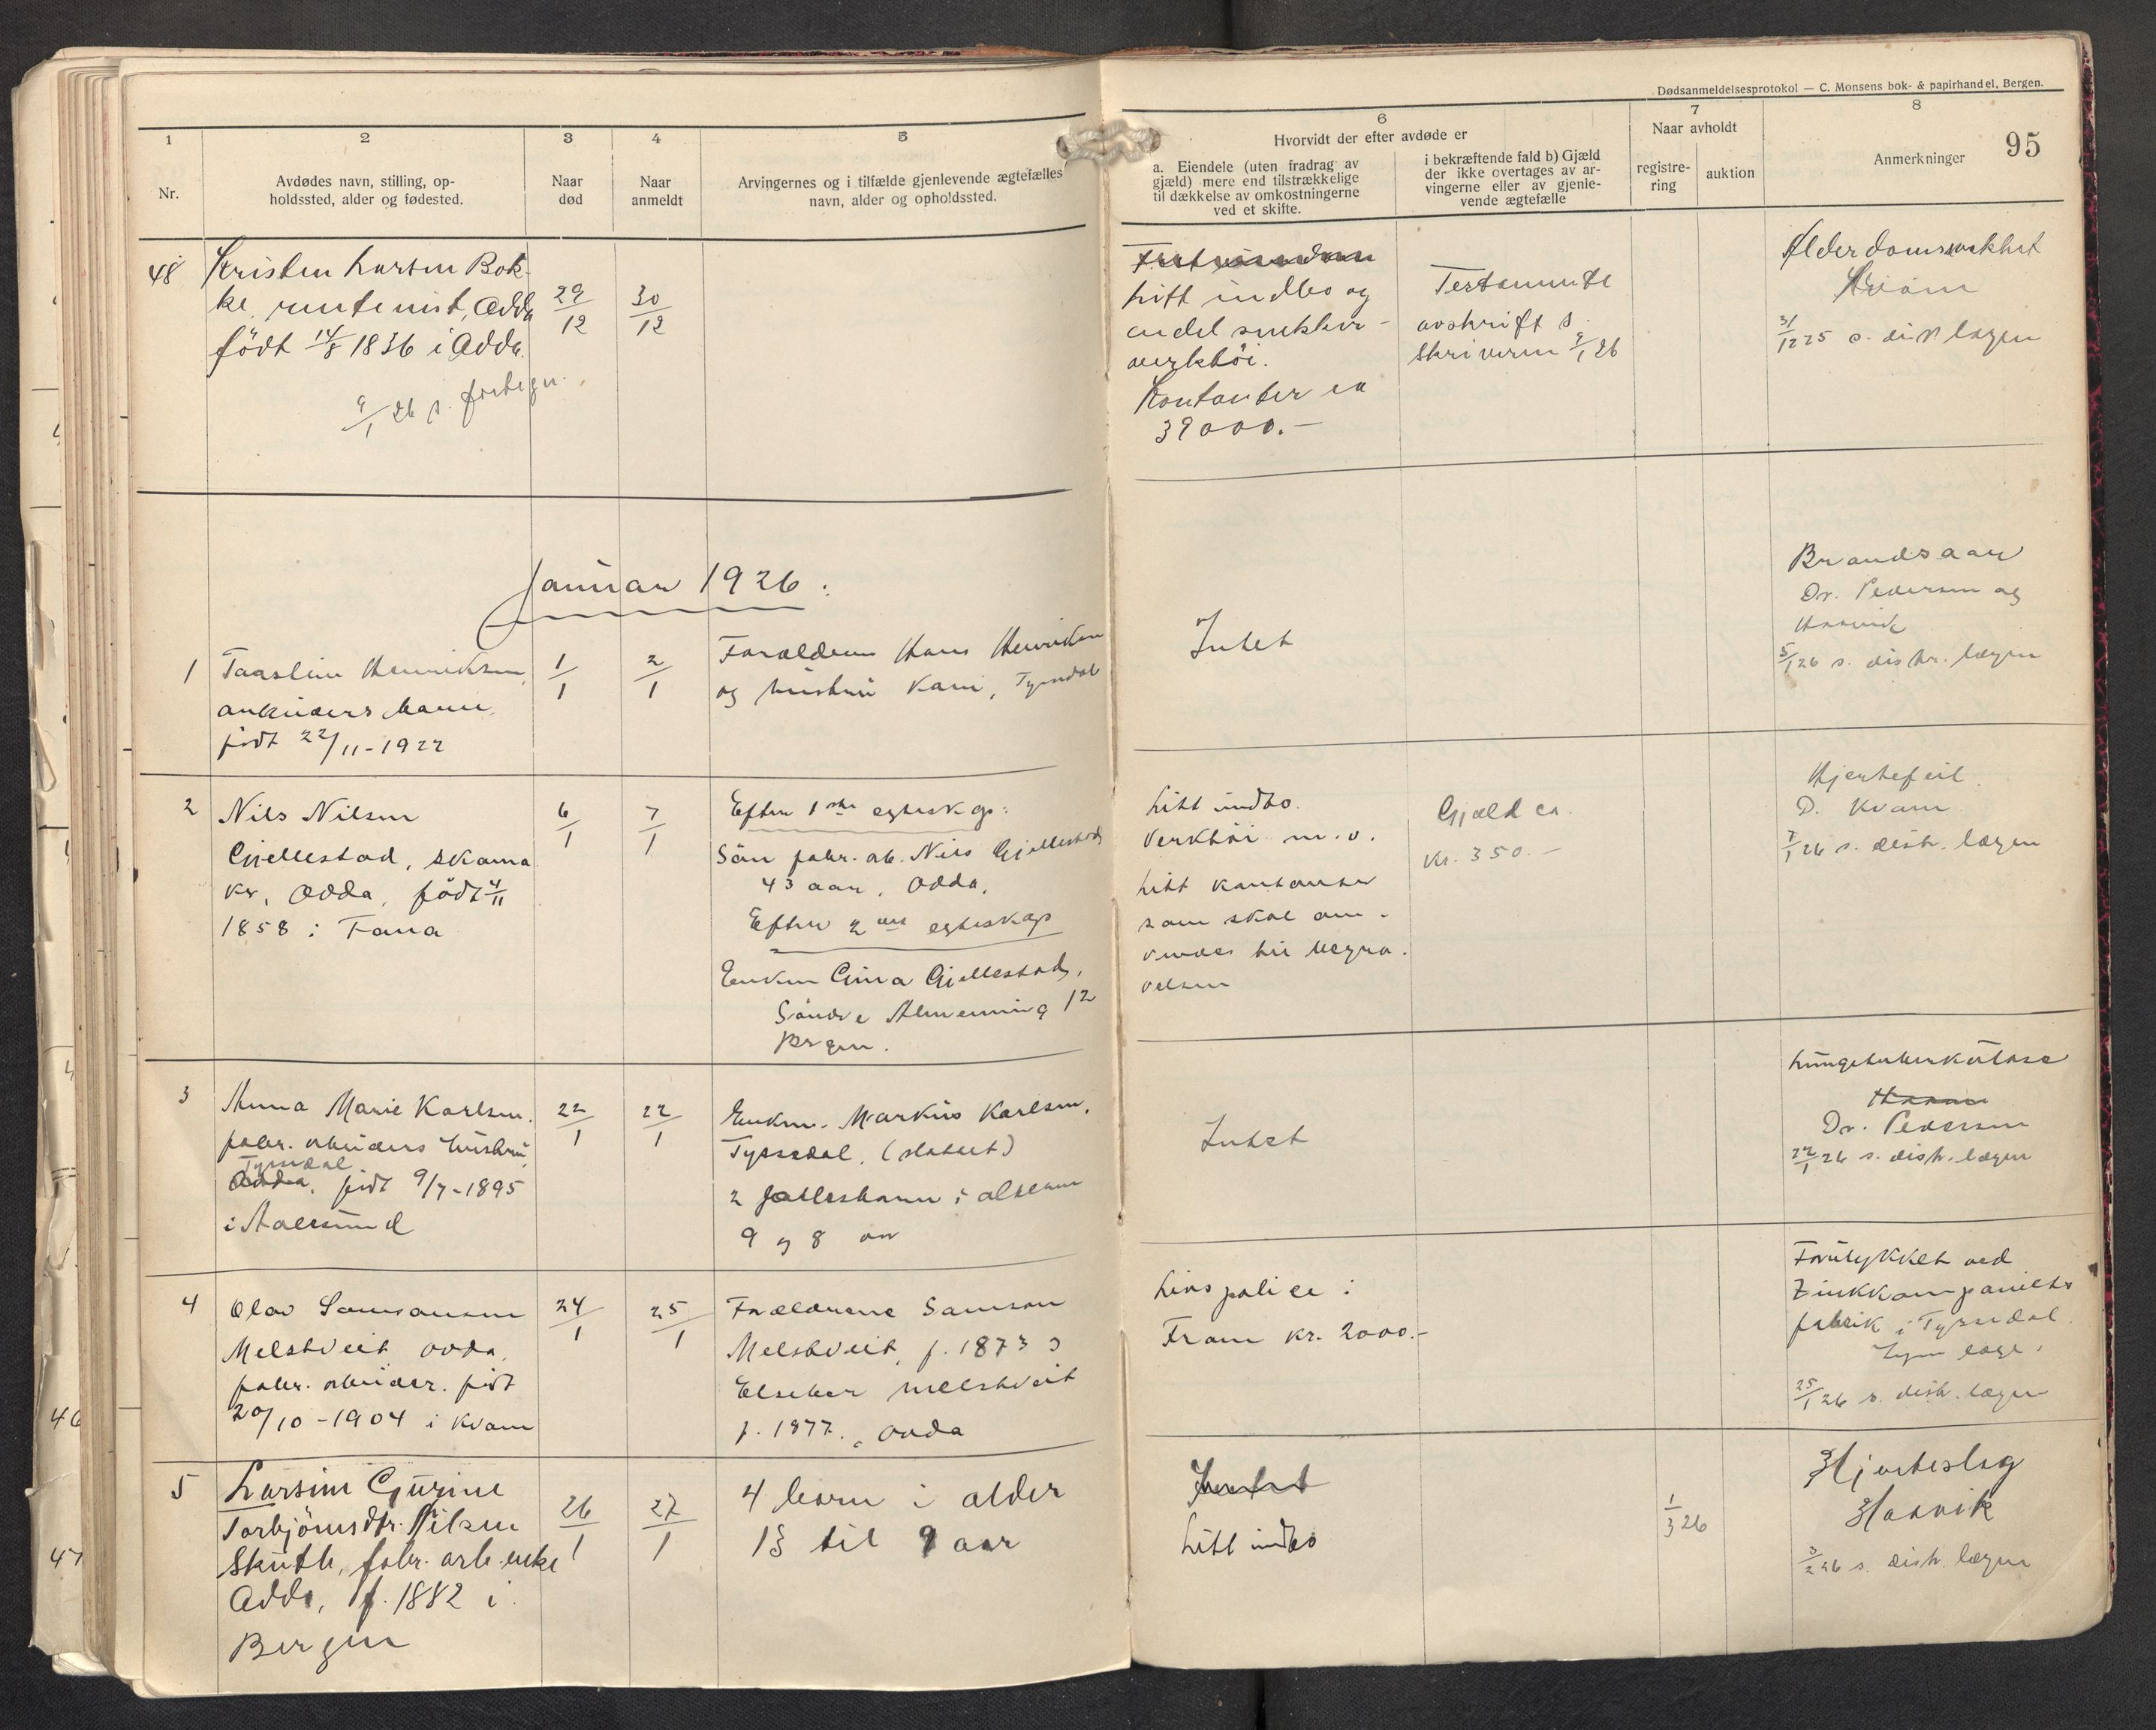 Dødsanmeldelsesprotokol — C. Monsens bok- & papirhandel, Bergen.
95
1
2
3
4
5
6
7
8
Nr.
Avdødes navn, stilling, op-
holdssted, alder og fødested.
Naar
død
Naar
anmeldt
Arvingernes og i tilfælde gjenlevende ægtefælles
navn, alder og opholdssted.
Hvorvidt der efter avdøde er
a. Eiendele (uten fradrag av
gjæld) mere end tilstrækkelige
til dækkelse av omkostningerne
ved et skifte.
i bekræftende fald b) Gjæld
der ikke overtages av ar-
vingerne eller av gjenle-
vende ægtefælle
Naar avholdt
registre-
ring
auktion
Anmerkninger
48
Kristen Larsen Bok-
ke, rentenist, Odda
født 14/8 1836 i Odda.
9/1 26 s. fortegn.
29/12
30/12
litt indbo og
endel snekker-
verktöi.
Kontanter ca
39000.-
Testamente
avskrift s.
skriveren 9/1 26
Alderdomssvakhet
31/12 25 s. distr. lægen
Januar 1926.
1
Taaslein Henriksen,
arbeiders barn,
født 22/11-1922
1/1
2/1
Forældrene Hans Henriksen
og hustru Kari, Tyssedal
Intet
Brandsaar
Dr. Pedersen og
Haavik
5/1 26 s. distr. lægen
2
Nils Nilsen
Gjellestad, skoma
ker, Odda, född 4/11
1858 i Fana
6/1
7/1
Efter 1ste egteskap:
Sön fabr. arb. Nils Gjellestad
43 aar, Odda.
Efter 2net egteskap
Enken Gina Gjellestad,
Söndre Almenning 12
Bergen.
Litt indbo.
Verktöi m.v.
Litt kontanter
som skal an-
vendes til begra-
velsen
Gjæld ca.
Kr. 350.-
Hjertefeil.
D. Kvam
7/1 26 s. distr. lægen
3
Anna Marie Karlsen.
fabr. arbeiders hustru,
Tyssedal
Odda, født 9/7-1895
i Aalesund
22/1
22/1
Enkem. Markus Karlsen,
Tyssedal,
2 fællesbarn i alderen
9 og 8 aar
Intet
Lungetuberkulose
Dr. Pedersen
22/1 26 s. distr. lægen
4
Olav Samsonsen
Melstveit Odda,
fabr. arbeider. født
20/10-1904 i Kvam
24/1
25/1
Forældrene Samson
Melstveit, f. 1873 og
Elseber Melstveit
f. 1877. Odda
Livspolice i
Fram kr. 2000.-
Forulykket ved
Zinkkompaniets
fabrik i Tyssedal.
25/1 26 s. distr. lægen
5
Larsine Gurine
Torbjörnsdtr. Nilsen
Skutle, fabr. arb. enke
Odda, f. 1882 i
Bergen
26/1
27/1
4 barn i alder
13 til 9 aar
Intet
Litt indbo
1/3 26
Hjerteslag
Haavik
3/2 26 s. distr. lægen
46
47